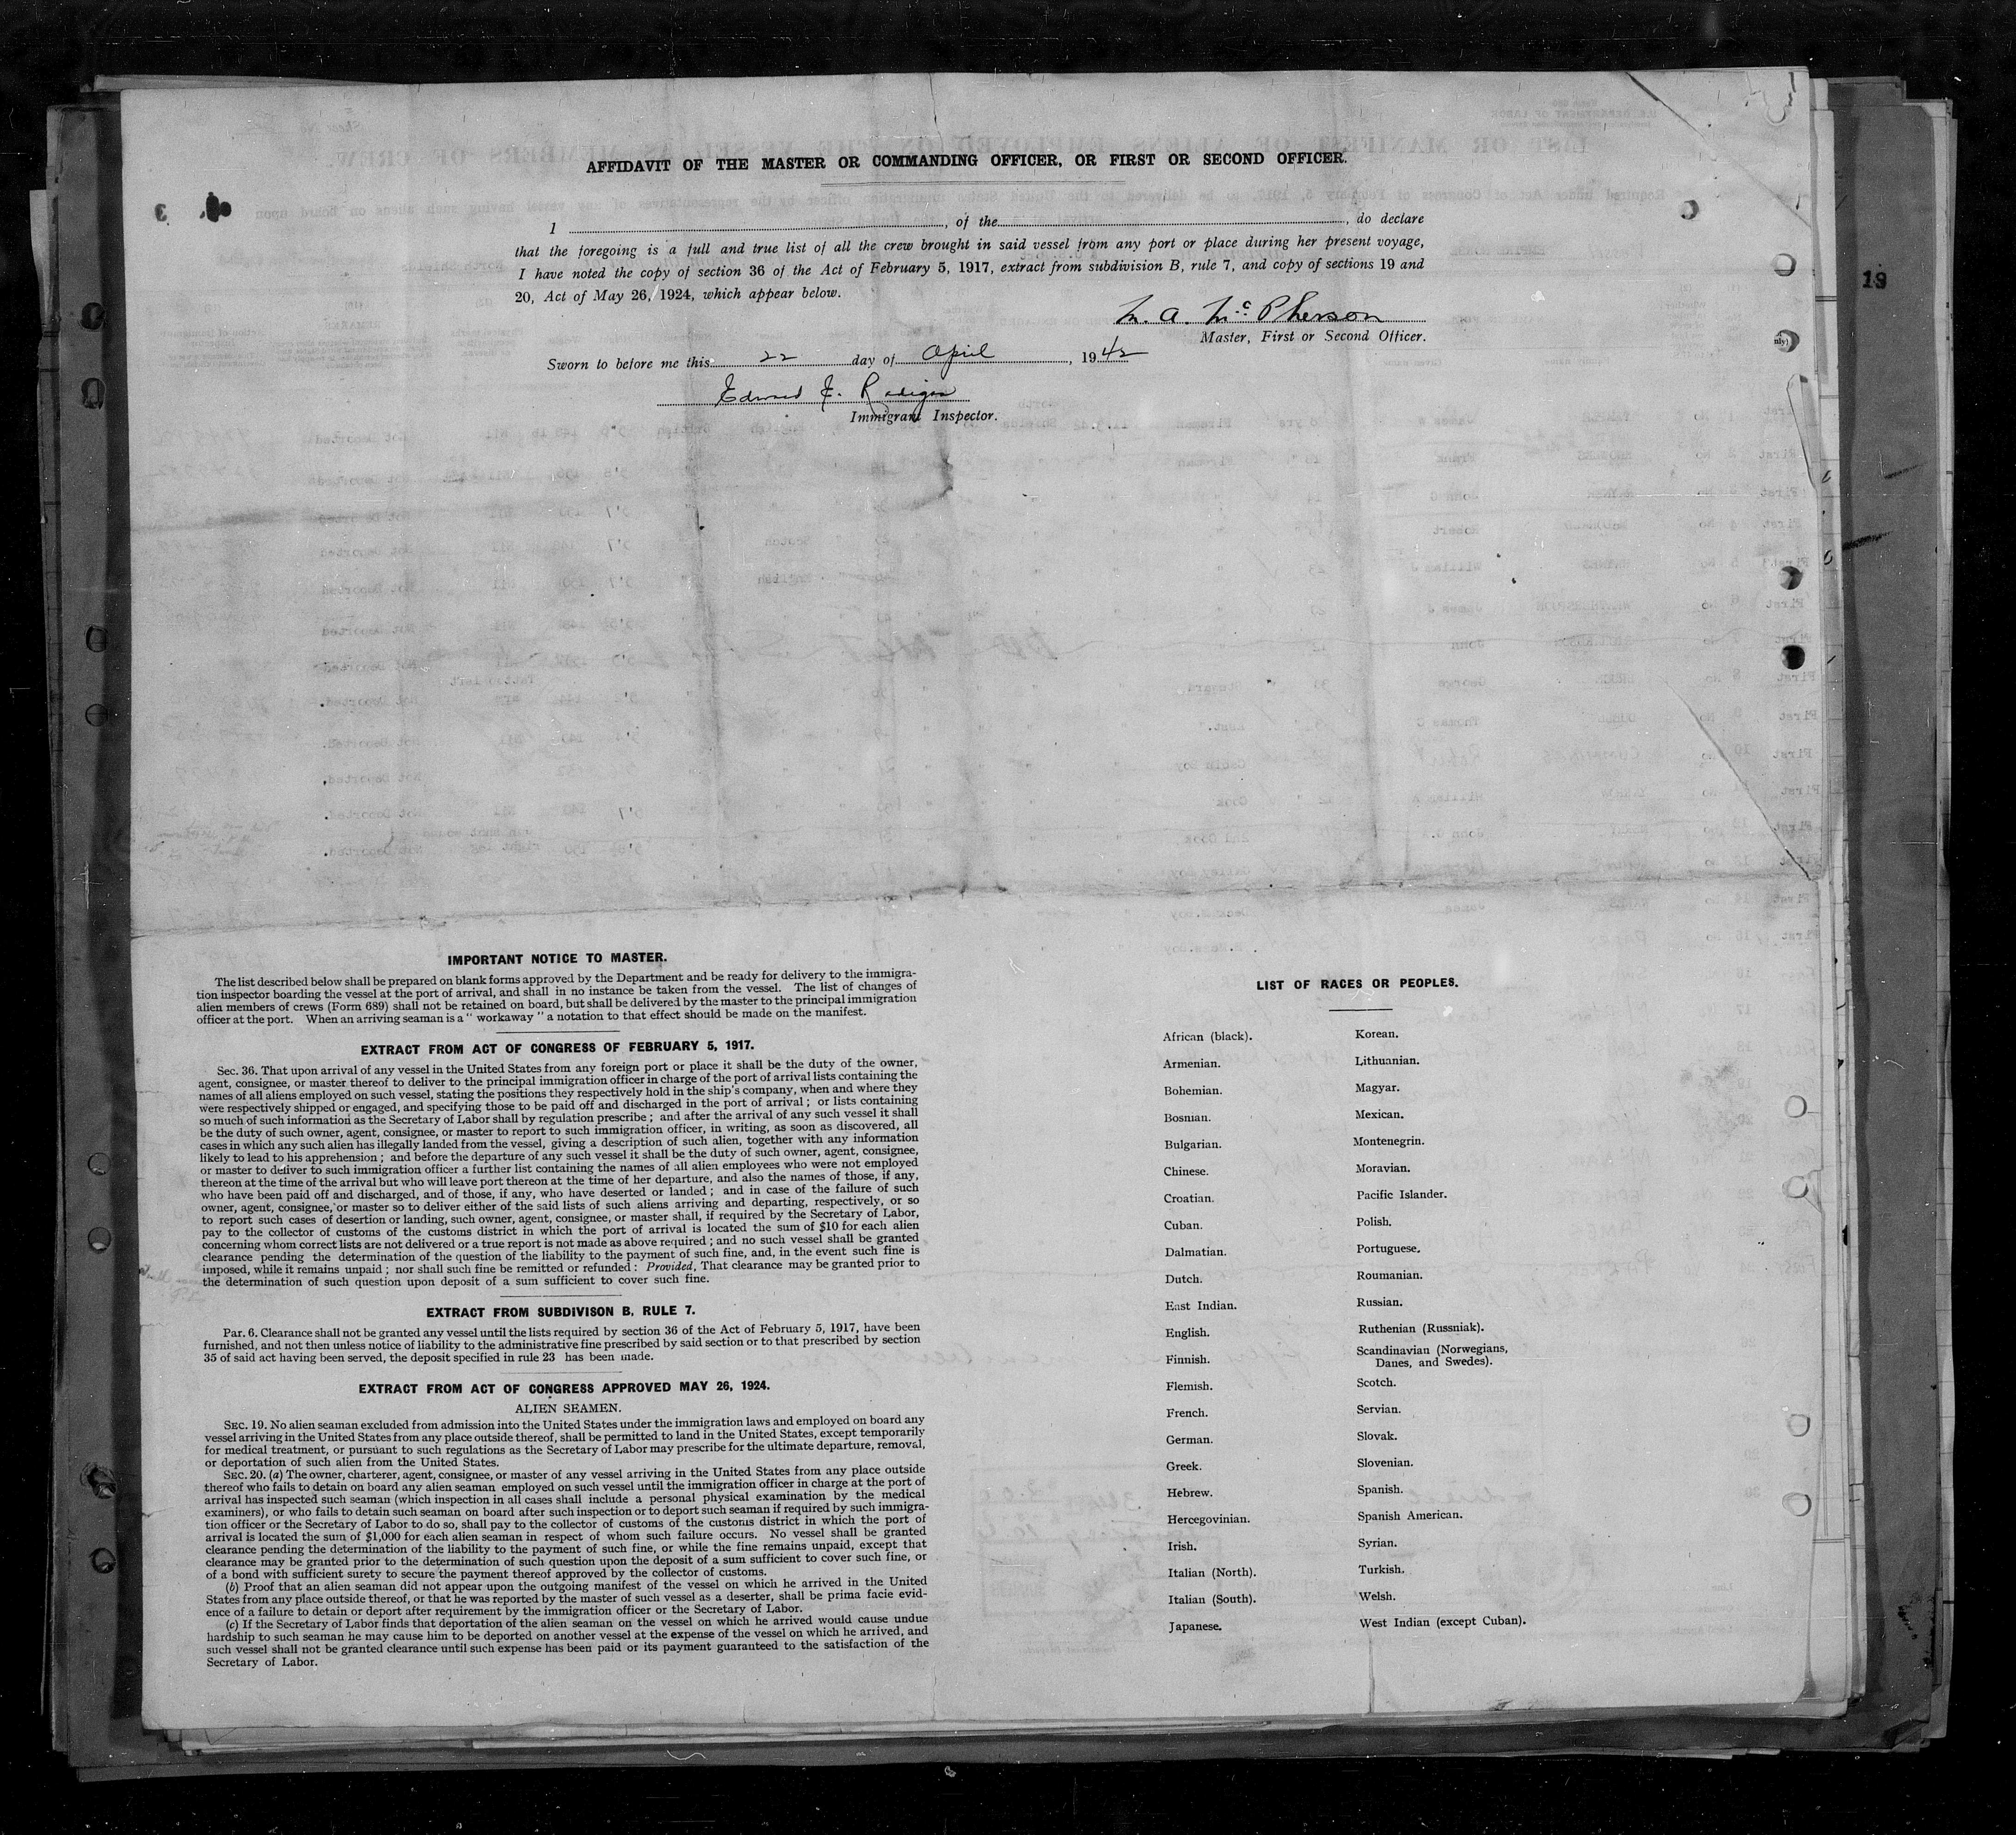 AFFIDAVIT OF THE MASTER OR COMMANDING OFFICER, OR FIRST OR SECOND OFFICER.
I , of the , do declare
that the foregoing is a full and true list of all the crew brought in said vessel from any port or place during her present voyage,
I have noted the copy of section 36 of the Act of February 5, 1917, extract from subdivision B, rule 7, and copy of sections 19 and
20, Act of May 26, 1924, which appear below.
A. McPherson
Master, First or Second Officer.
Sworn to before me this 22 day of April , 1942
Edward
Immigrant Inspector.
19
IMPORTANT NOTICE TO MASTER.
The list described below shall be prepared on blank forms approved by the Department and be ready for delivery to the immigra-
tion inspector boarding the vessel at the port of arrival, and shall in no instance be taken from the vessel. The list of changes of
alien members of crews (Form 689) shall not be retained on board, but shall be delivered by the master to the principal immigration
officer at the port. When an arriving seaman is a " workaway " a notation to that effect should be made on the manifest.
EXTRACT FROM ACT OF CONGRESS OF FEBRUARY 5, 1917.
Sec. 36. That upon arrival of any vessel in the United States from any foreign port or place it shall be the duty of the owner,
agent, consignee, or master thereof to deliver to the principal immigration officer in charge of the port of arrival lists containing the
names of all aliens employed on such vessel, stating the positions they respectively hold in the ship's company, when and where they
were respectively shipped or engaged, and specifying those to be paid off and discharged in the port of arrival ; or lists containing
so much of such information as the Secretary of Labor shall by regulation prescribe ; and after the arrival of any such vessel it shall
be the duty of such owner, agent, consignee, or master to report to such immigration officer, in writing, as soon as discovered, all
cases in which any such alien has illegally landed from the vessel, giving a description of such alien, together with any information
likely to lead to his apprehension ; and before the departure of any such vessel it shall be the duty of such owner, agent, consignee,
or master to deliver to such immigration officer a further list containing the names of all alien employees who were not employed
thereon at the time of the arrival but who will leave port thereon at the time of her departure, and also the names of those, if any,
who have been paid off and discharged, and of those, if any, who have deserted or landed ; and in case of the failure of such
owner, agent, consignee, or master so to deliver either of the said lists of such aliens arriving and departing, respectively, or so
to report such cases of desertion or landing, such owner, agent, consignee, or master shall, if required by the Secretary of Labor,
pay to the collector of customs of the customs district in which the port of arrival is located the sum of $10 for each alien
concerning whom correct lists are not delivered or a true report is not made as above required ; and no such vessel shall be granted
clearance pending the determination of the question of the liability to the payment of such fine, and, in the event such fine is
imposed, while it remains unpaid ; nor shall such fine be remitted or refunded : Provided, That clearance may be granted prior to
the determination of such question upon deposit of a sum sufficient to cover such fine.
EXTRACT FROM SUBDIVISON B, RULE 7.
Par. 6. Clearance shall not be granted any vessel until the lists required by section 36 of the Act of February 5, 1917, have been
furnished, and not then unless notice of liability to the administrative fine prescribed by said section or to that prescribed by section
35 of said act having been served, the deposit specified in rule 23 has been made.
EXTRACT FROM ACT OF CONGRESS APPROVED MAY 26, 1924.
ALIEN SEAMEN.
SEC. 19. No alien seaman excluded from admission into the United States under the immigration laws and employed on board any
vessel arriving in the United States from any place outside thereof, shall be permitted to land in the United States, except temporarily
for medical treatment, or pursuant to such regulations as the Secretary of Labor may prescribe for the ultimate departure, removal,
or deportation of such alien from the United States.
SEC. 20. (a) The owner, charterer, agent, consignee, or master of any vessel arriving in the United States from any place outside
thereof who fails to detain on board any alien seaman employed on such vessel until the immigration officer in charge at the port of
arrival has inspected such seaman (which inspection in all cases shall include a personal physical examination by the medical
examiners), or who fails to detain such seaman on board after such inspection or to deport such seaman if required by such immigra-
tion officer or the Secretary of Labor to do so, shall pay to the collector of customs of the customs district in which the port of
arrival is located the sum of $1,000 for each alien seaman in respect of whom such failure occurs. No vessel shall be granted
clearance pending the determination of the liability to the payment of such fine, or while the fine remains unpaid, except that
clearance may be granted prior to the determination of such question upon the deposit of a sum sufficient to cover such fine, or
of a bond with sufficient surety to secure the payment thereof approved by the collector of customs.
(b) Proof that an alien seaman did not appear upon the outgoing manifest of the vessel on which he arrived in the United
States from any place outside thereof, or that he was reported by the master of such vessel as a deserter, shall be prima facie evid-
ence of a failure to detain or deport after requirement by the immigration officer or the Secretary of Labor.
(c) If the Secretary of Labor finds that deportation of the alien seaman on the vessel on which he arrived would cause undue
hardship to such seaman he may cause him to be deported on another vessel at the expense of the vessel on which he arrived, and
such vessel shall not be granted clearance until such expense has been paid or its payment guaranteed to the satisfaction of the
Secretary of Labor.
LIST OF RACES OR PEOPLES.
African (black).
Armenian.
Bohemian.
Bosnian.
Bulgarian.
Chinese.
Croatian.
Cuban.
Dalmatian.
Dutch.
East Indian.
English.
Finnish.
Flemish.
French.
German.
Greek.
Hebrew.
Hercegovinian.
Irish.
Italian (North).
Italian (South).
Japanese.
Korean.
Lithuanian.
Magyar.
Mexican.
Montenegrin.
Moravian.
Pacific Islander.
Polish.
Portuguese.
Roumanian.
Russian.
Ruthenian (Russniak).
Scandinavian (Norwegians,
Danes, and Swedes).
Scotch.
Servian.
Slovak.
Slovenian.
Spanish.
Spanish American.
Syrian.
Turkish.
Welsh.
West Indian (except Cuban).